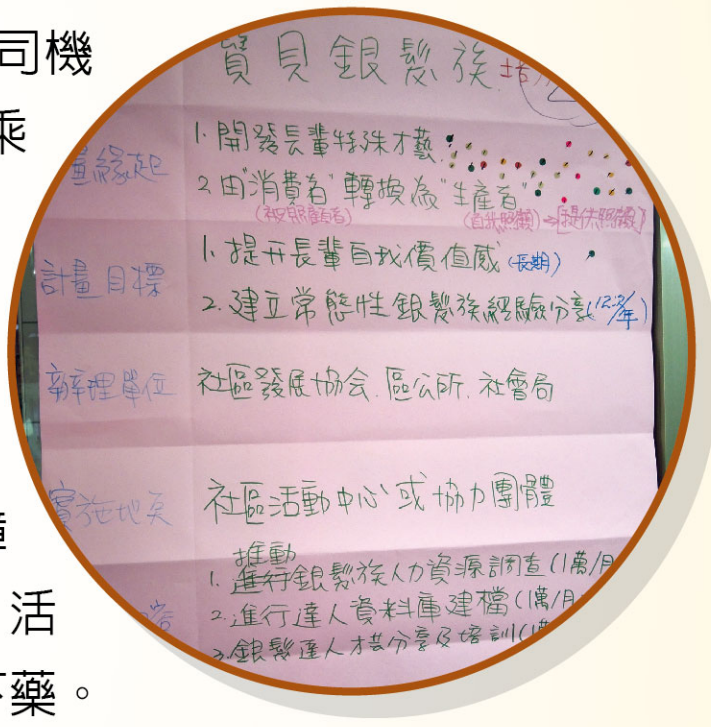 司機
乘
活
下藥。
寶貝銀髮族
畫緣起
1.開發長輩特殊才藝
2.由"消費者"轉換為"生產者"
(被照顧者) (自我照顧)→[提供照顧]
計畫目標
1.提升長輩自我價值感(長期)
2.建立常態性銀髮族經驗分享(12次/年)
辦理單位 社區發展協会.區公所.社會局
實施地點 社區活動中心或協力團體
推動
1.進行銀髮族人力資源調查(1萬/月
2.進行達人資料庫建檔(1萬/月
3.銀髮達人才藝分享及培訓(1萬